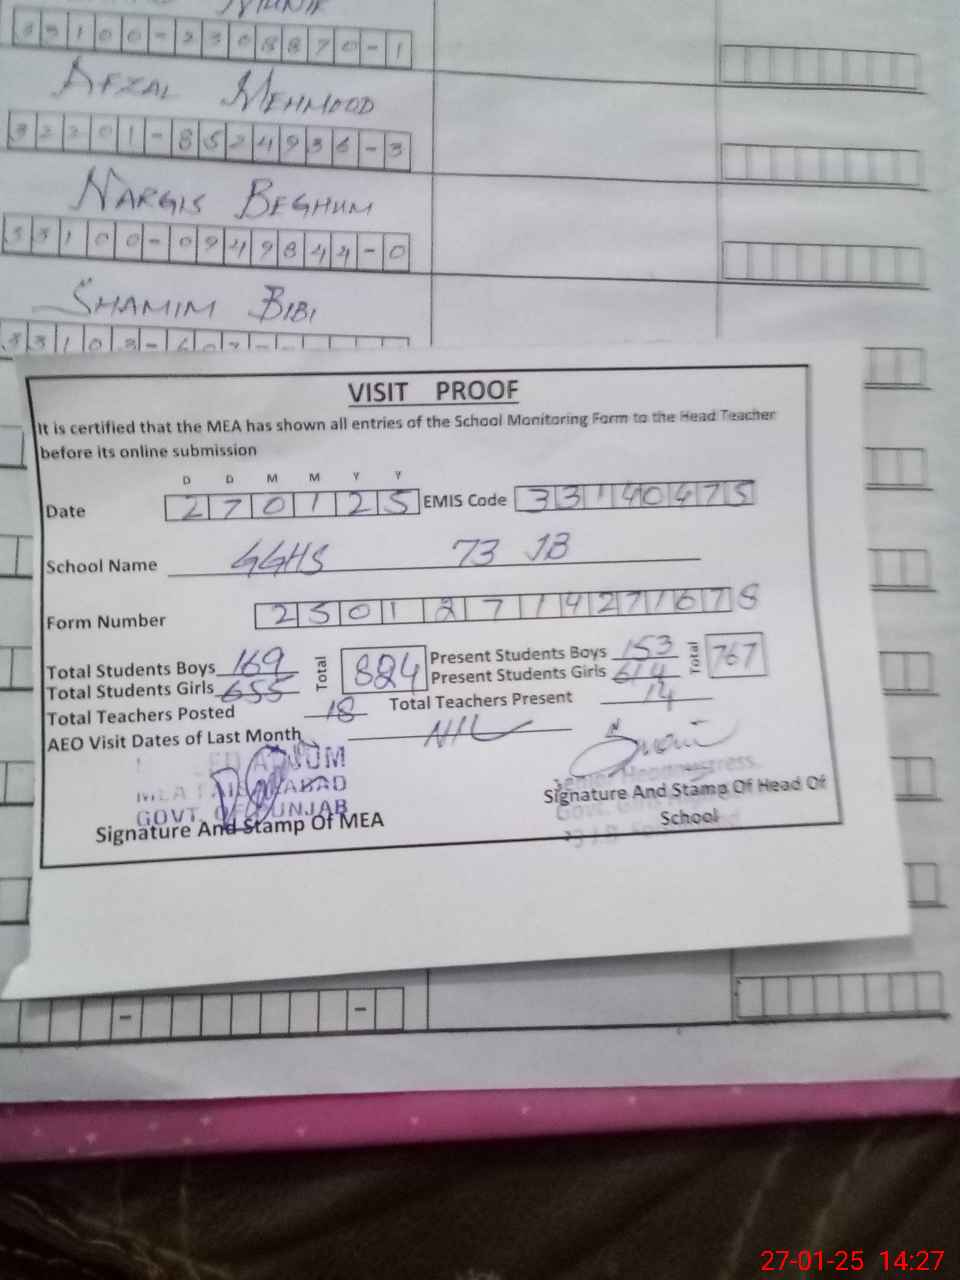 33100-2308870-1
AFZAL MEHMOOD
32201-8524936-3
NARGIS BEGHUM
33100-0949844-0
SHAMIM BIBI
33103-
VISIT PROOF
It is certified that the MEA has shown all entries of the School Monitoring Form to the Head Teacher
before its online submission
D D M M Y Y
Date 270125 EMIS Code 33140475
School Name GGHS 73 JB
Form Number 25012714271678
Total Students Boys 169 Total 824 Present Students Boys 153 Total 767
Total Students Girls 655 Present Students Girls 614
Total Teachers Posted 18 Total Teachers Present 14
AEO Visit Dates of Last Month NIL
MEA FAISALABAD
GOVT. OF PUNJAB
Senior Headmistress
Signature And Stamp Of MEA
Signature And Stamp Of Head Of
School
27-01-25 14:27